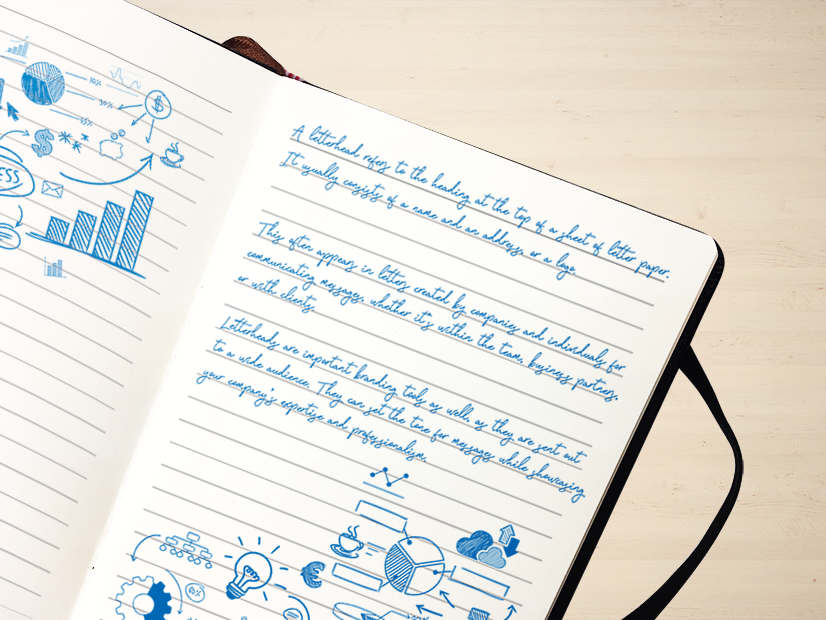 10%
30%
55%
$
$
ESS
A letterhead refers to the heading at the top of a sheet of letter paper.
It usually consists of a name and an address, or a logo.
This often appears in letters created by companies and individuals for
communicating messages, whether it's within the team, business partners,
or with clients.
Letterheads are important branding tools as well, as they are sent out
to a wide audience. They can set the tone for messages while showcasing
your company's expertise and professionalism.
€